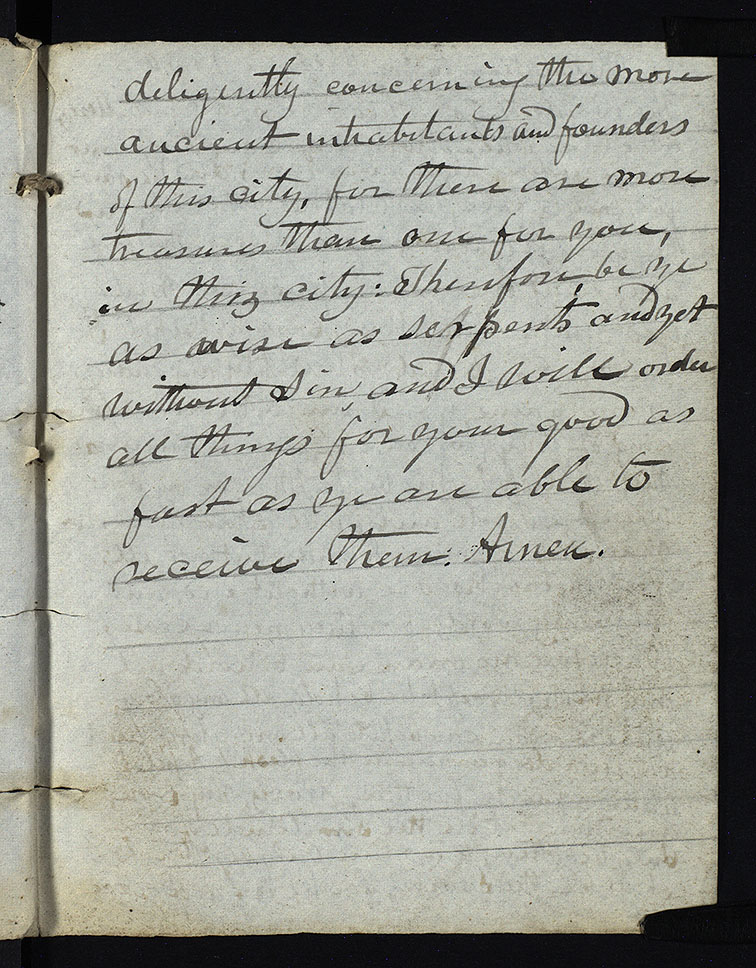 deligently concerning the more
ancient inhabitants and founders
of this city, for there are more
treasures than one for you,
in this city: Therefore, be ye
as wise as serpents and yet
without Sin, and I will order
all things for your good as
fast as ye are able to
receive them. Amen.